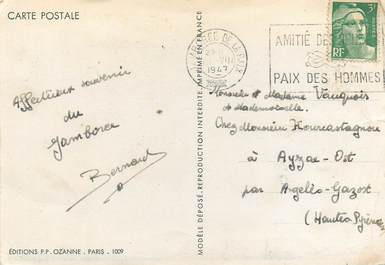 CARTE POSTALE
Affectueux souvenir
du
Jamboree
Bernard
ÉDITIONS P.P. OZANNE, PARIS - 1009
MODÈLE DÉPOSÉ, REPRODUCTION INTERDITE, IMPRIMÉ EN FRANCE
DE LA PAIX
1947
3F
RF
AMITIÉ DES
PAIX DES HOMMES
Monsieur et Madame Vauquois
et Mademoiselle.
Chez Monsieur Hourcastagnou
à Ayzac-Ost
par Argelès-Gazost
(Hautes Pyrénées